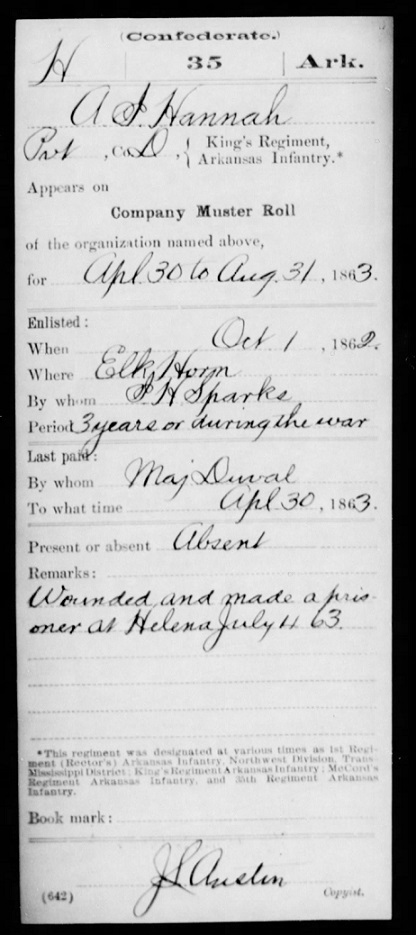 (Confederate.)
H | 35 | Ark.
A. J. Hannah
Pvt, Co. D, { King's Regiment,
Arkansas Infantry.*
Appears on
Company Muster Roll
of the organization named above,
for Apl. 30 to Aug. 31, 1863.
Enlisted:
When Oct 1, 1862.
Where Elk Horn
By whom Sparks
Period 3 years or during the war
Last paid:
By whom Maj Duval
To what time Apl. 30, 1863.
Present or absent Absent
Remarks:
Wounded and made a pris-
oner at Helena July 4 63.
*This regiment was designated at various times as 1st Regi-
ment (Rector's) Arkansas Infantry, Northwest Division, Trans-
Mississippi District; King's Regiment Arkansas Infantry; McCord's
Regiment Arkansas Infantry, and 35th Regiment Arkansas
Infantry.
Book mark:
J L Austin
(642) Copyist.